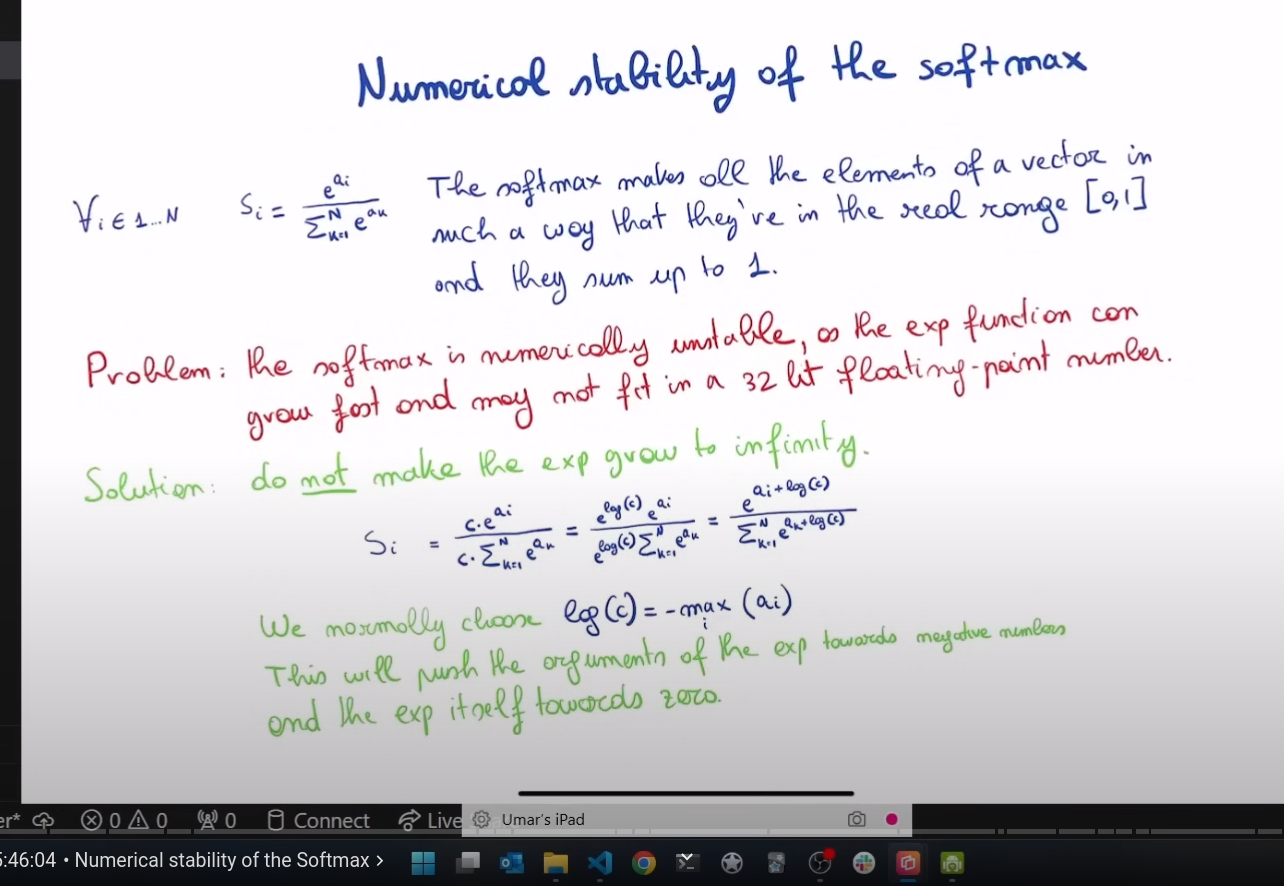 Numerical stability of the softmax
∀i ∈ 1...N   Si = e^{ai} / Σ_{k=1}^{N} e^{ak}   The softmax makes all the elements of a vector in
such a way that they've in the real range [0,1]
and they sum up to 1.
Problem: the softmax is numerically unstable, as the exp function can
grow fast and may not fit in a 32 bit floating-point number.
Solution: do not make the exp grow to infinity.
Si = c·e^{ai} / c·Σ_{k=1}^{N} e^{ak} = e^{log(c)} e^{ai} / e^{log(c)} Σ_{k=1}^{N} e^{ak} = e^{ai+log(c)} / Σ_{k=1}^{N} e^{ak+log(c)}
We normally choose log(c) = - max_i (ai)
This will push the arguments of the exp towards negative numbers
and the exp itself towards zero.
er* 0 0 0 Connect Live Umar's iPad
5:46:04 • Numerical stability of the Softmax >